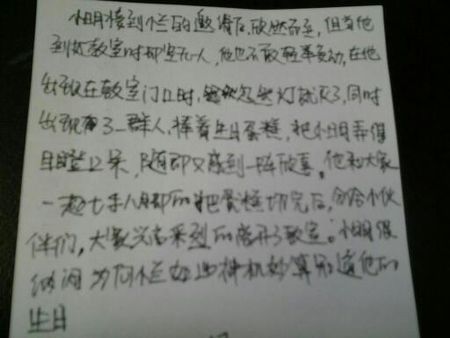 小明接到小兰的邀请后，欣然而至，但当他
到达教室时却空无一人，他也不敢轻举妄动，在他
出现在教室门口时，忽然灯就灭了，同时
出现了一群人，捧着生日蛋糕，把小明弄得
目瞪口呆，随即又感到一阵欣喜。他和大家
一起七手八脚的把蛋糕切完后，分给小伙
伴们，大家兴高采烈的离开了教室。小明很
纳闷为何小兰如此神机妙算知道他的
生日